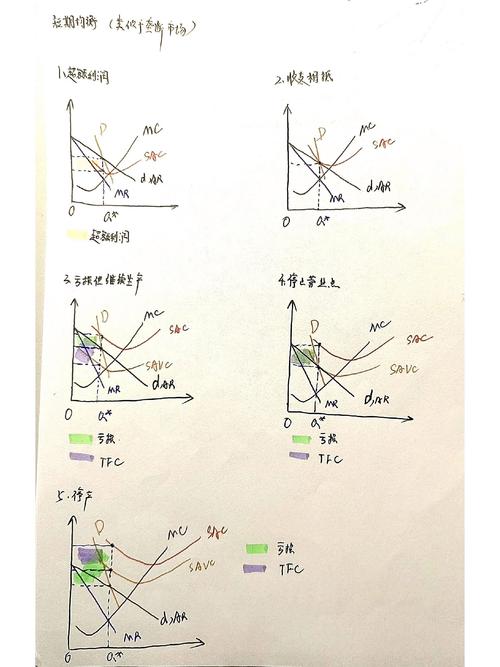 短期均衡 (类似于垄断市场)
1.超额利润
2.收支相抵
D
MC
SAC
d,AR
MR
O
Q*
超额利润
D
MC
SAC
d,AR
MR
O
Q*
3.亏损但继续生产
4.停止营业点
D
MC
SAC
SAVC
d,AR
MR
O
Q*
亏损
TFC
D
MC
SAC
SAVC
d,AR
MR
O
Q*
亏损
TFC
5.停产
D
MC
SAC
SAVC
d,AR
MR
O
Q*
亏损
TFC